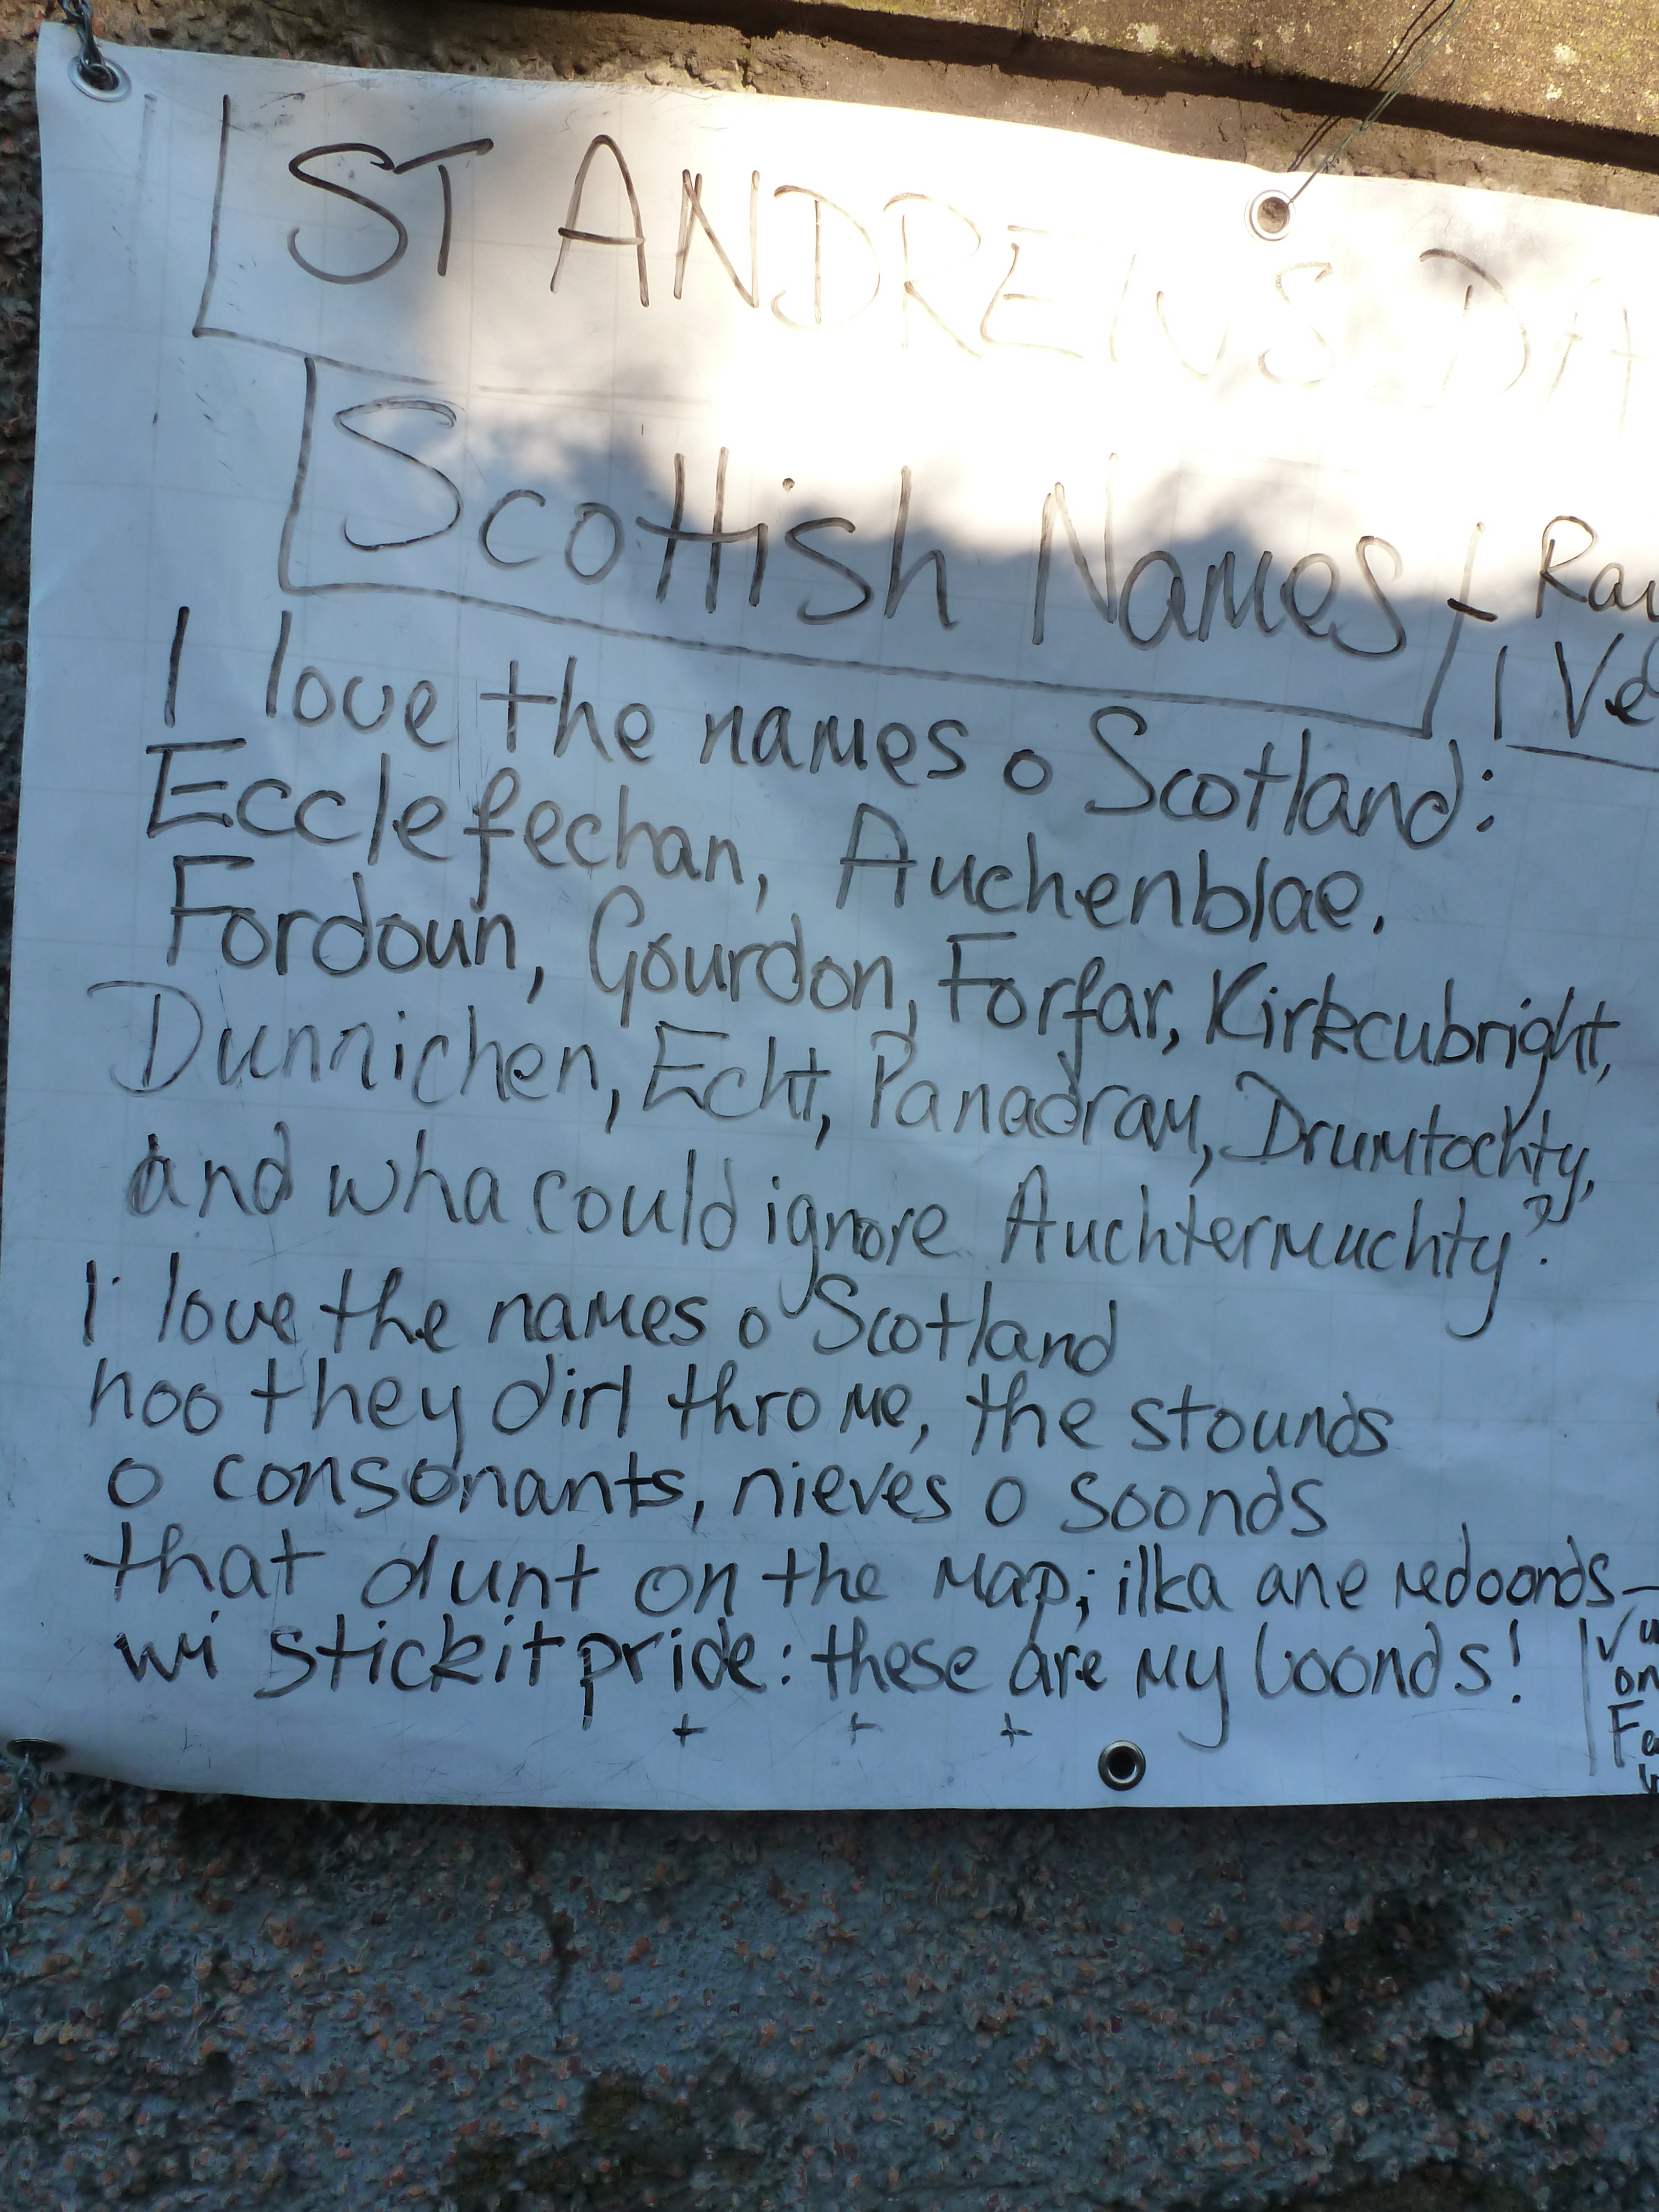 ST ANDREWS DA
Scottish Names
I love the names o Scotland:
Ecclefechan, Auchenblae,
Fordoun, Gourdon, Forfar, Kirkcubright,
Dunnichen, Echt, Panadram, Drumtochty,
and wha could ignore Auchtermuchty?
I love the names o Scotland
hoo they dirl thro me, the stounds
o consonants, nieves o soonds
that dunt on the map; ilka ane redoonds
wi stickit pride: these are my boonds!